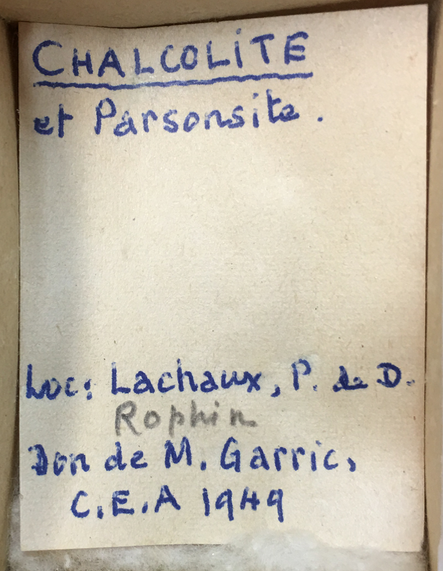 CHALCOLITE
et Parsonsite.
Loc: Lachaux, P. de D.
Rophin
Don de M. Garric,
C.E.A 1949